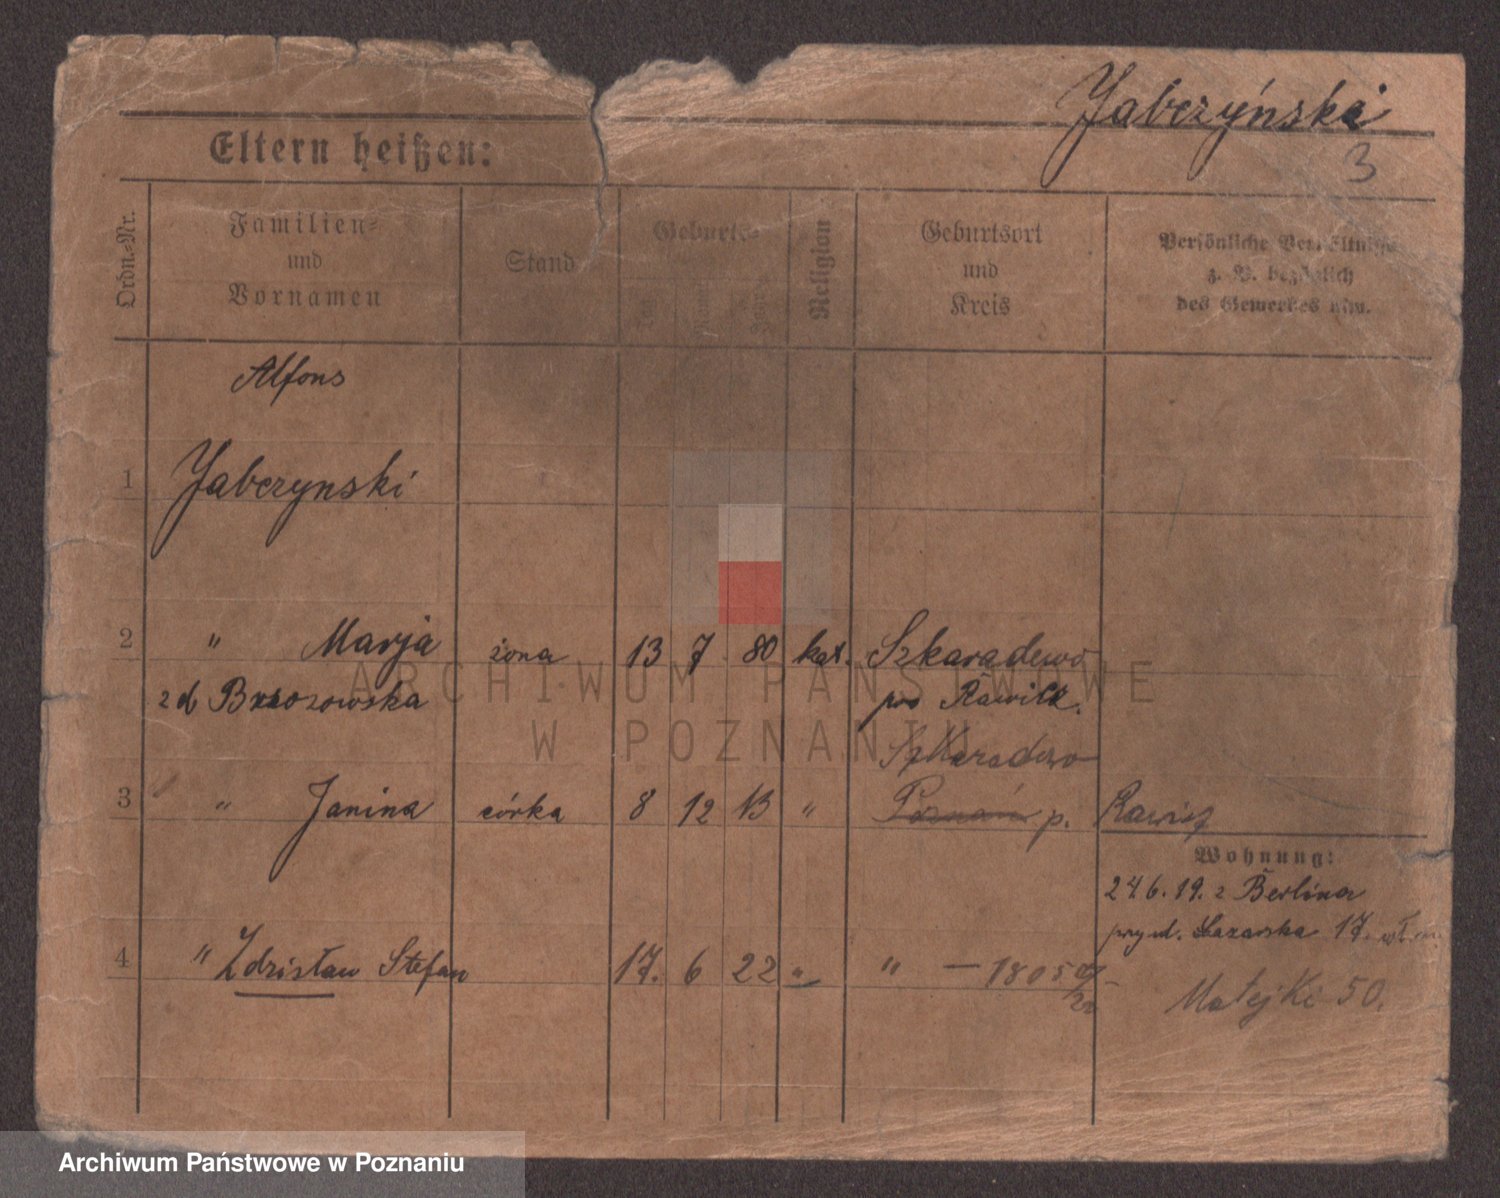 Jabczyński
3
Eltern heißen:
Ordn.-Nr.
Familien-
und
Vornamen
Stand
Geburts-
Religion
Geburtsort
und
Kreis
Persönliche Verhältnisse
z. B. bezüglich
des Gewerbes usw.
Alfons
1 Jabczynski
2 " Marja żona 13 7 80 kat. Szkaradowo
z d Brzozowska Rawicz
Szkaradowo
3 " Janina córka 8 12 13 " Poznań p. Rawicz
Wohnung:
24.6.19. z Berlina
Łazarska 17.
4 " Zdzisław Stefan 17. 6 22 " " — 1805
Matejki 50.
ARCHIWUM PAŃSTWOWE
W POZNANIU
Archiwum Państwowe w Poznaniu